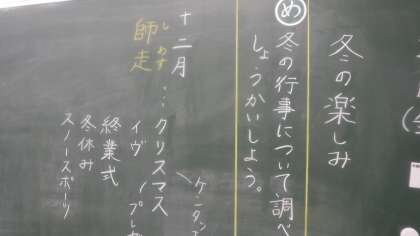 冬の楽しみ
め
冬の行事について調べ
しょうかいしよう。
十二月…クリスマス
師走
しわす
イヴ
終業式
冬休み
スノースポーツ